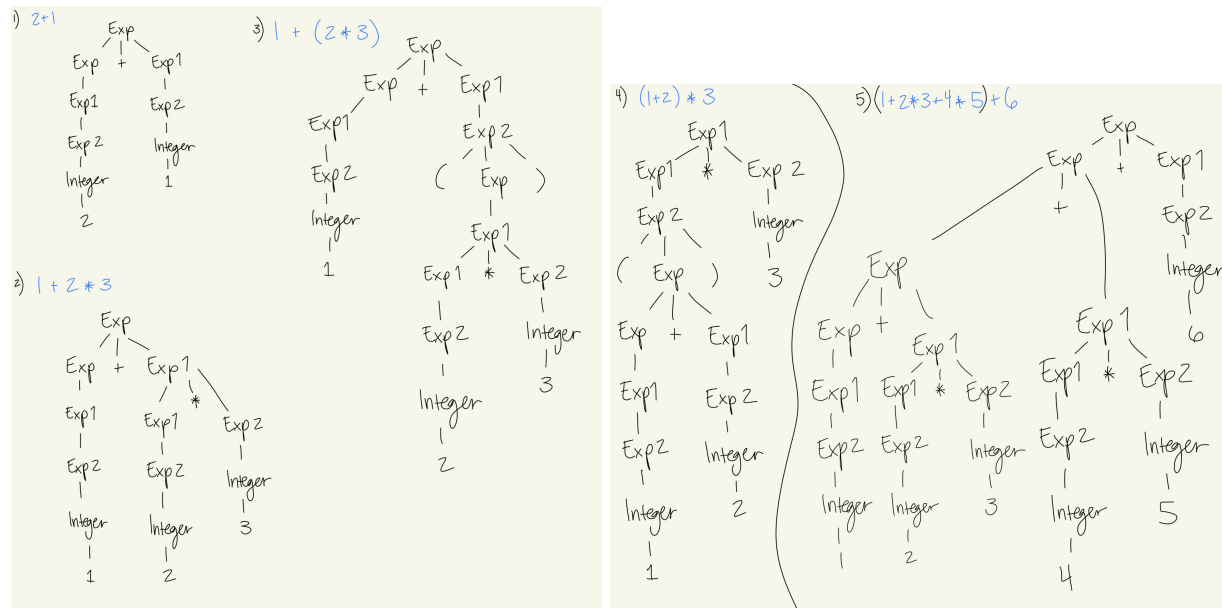 1) 2+1
Exp
Exp + Exp1
Exp1 Exp2
Exp2 Integer
Integer 1
2
2) 1 + 2 * 3
Exp
Exp + Exp1
*
Exp1 Exp1 Exp2
Exp2 Exp2 Integer
Integer Integer 3
1 2
3) 1 + (2*3)
Exp
Exp + Exp1
Exp1 Exp2
Exp2 ( Exp )
Integer Exp1
1 Exp1 * Exp2
Exp2 Integer
Integer 3
2
4) (1+2) * 3
Exp1
Exp1 * Exp2
Exp2 Integer
( Exp ) 3
Exp + Exp1
Exp1 Exp2
Exp2 Integer
Integer 2
1
5) (1+2*3+4*5)+6
Exp
Exp + Exp1
+ Exp2
Exp Integer
Exp + Exp1 Exp1 6
Exp1 Exp1 * Exp2 Exp1 * Exp2
Exp2 Exp2 Integer Exp2 Integer
Integer Integer 3 Integer 5
1 2 4